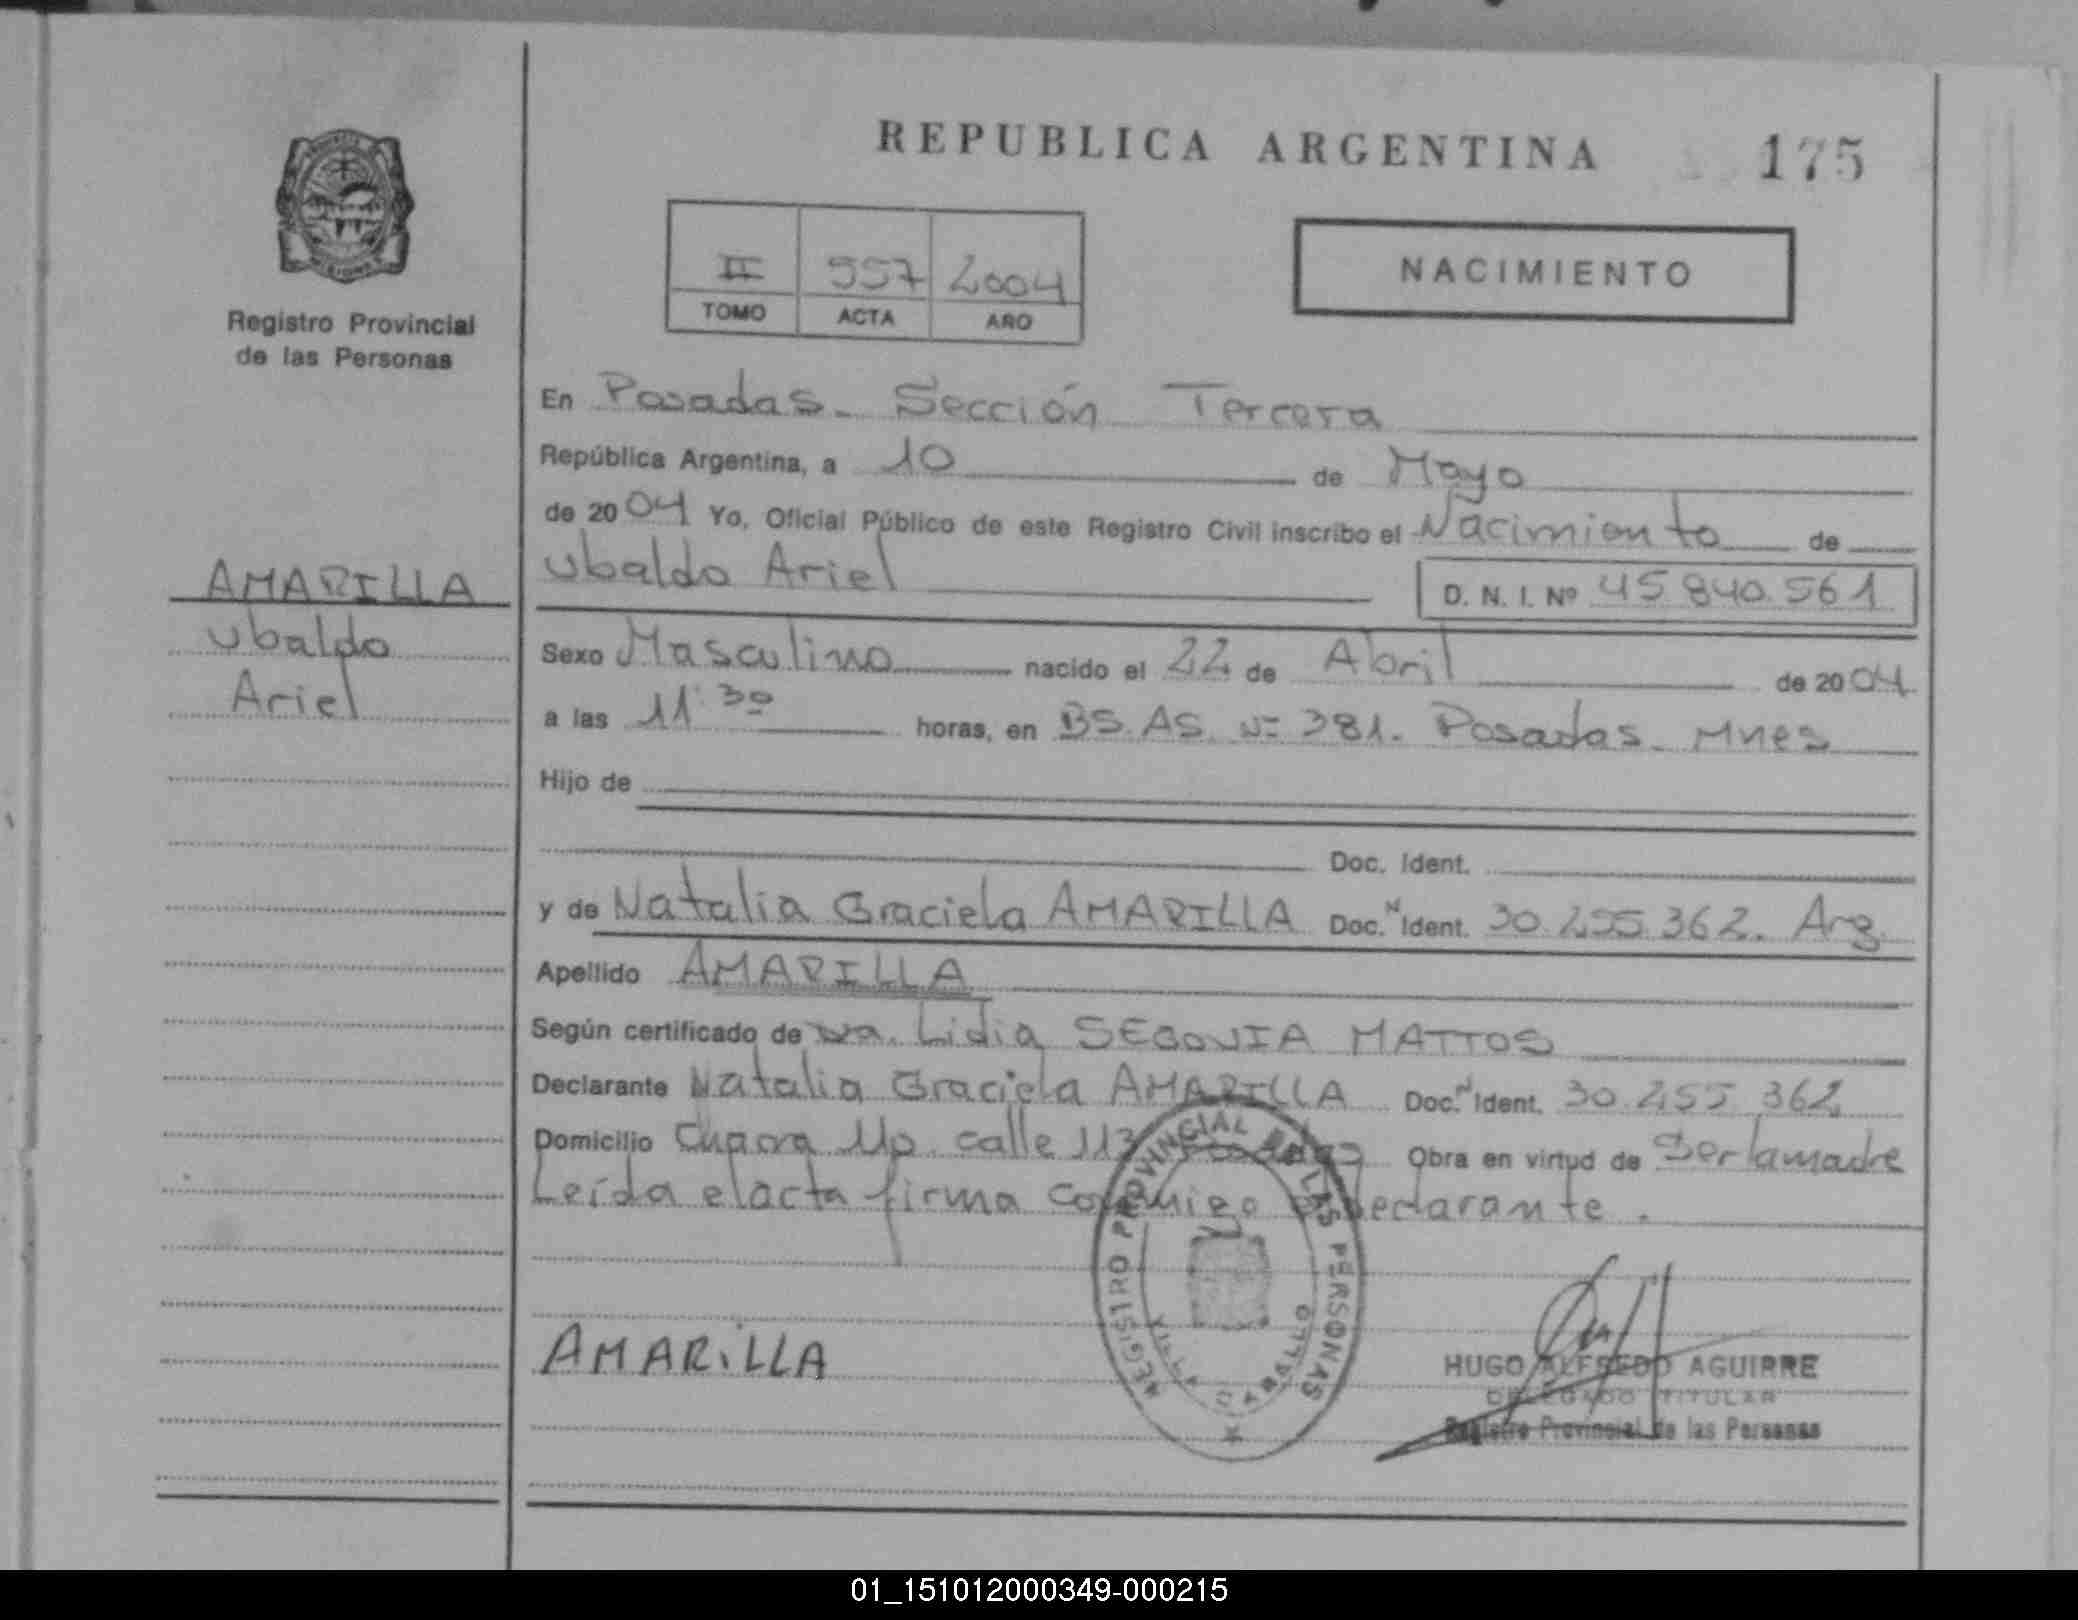 REPUBLICA ARGENTINA 175
II 557 2004
TOMO ACTA AÑO
NACIMIENTO
Registro Provincial
de las Personas
AMARILLA
Ubaldo
Ariel
En Posadas. Sección Tercera
República Argentina, a 10 de Mayo
de 2004 Yo, Oficial Público de este Registro Civil inscribo el Nacimiento de
Ubaldo Ariel D. N. I. Nº 45.840.561
Sexo Masculino nacido el 22 de Abril de 2004
a las 11:30 horas, en BS. AS. Nº 381. Posadas. Mnes
Hijo de
Doc. Ident.
y de Natalia Graciela AMARILLA Doc. N Ident. 30.255.362. Arg.
Apellido AMARILLA
Según certificado de Dra. Lidia SEGOVIA MATTOS
Declarante Natalia Graciela AMARILLA Doc. N Ident. 30.255.362
Domicilio Chacra 110. calle 113 Posadas Obra en virtud de Ser la madre
Leída el acta firma conmigo el declarante.
REGISTRO PROVINCIAL DE LAS PERSONAS
VILLA CABALLO
AMARiLLA
HUGO ALFREDO AGUIRRE
DELEGADO TITULAR
Registro Provincial de las Personas
01_151012000349-000215